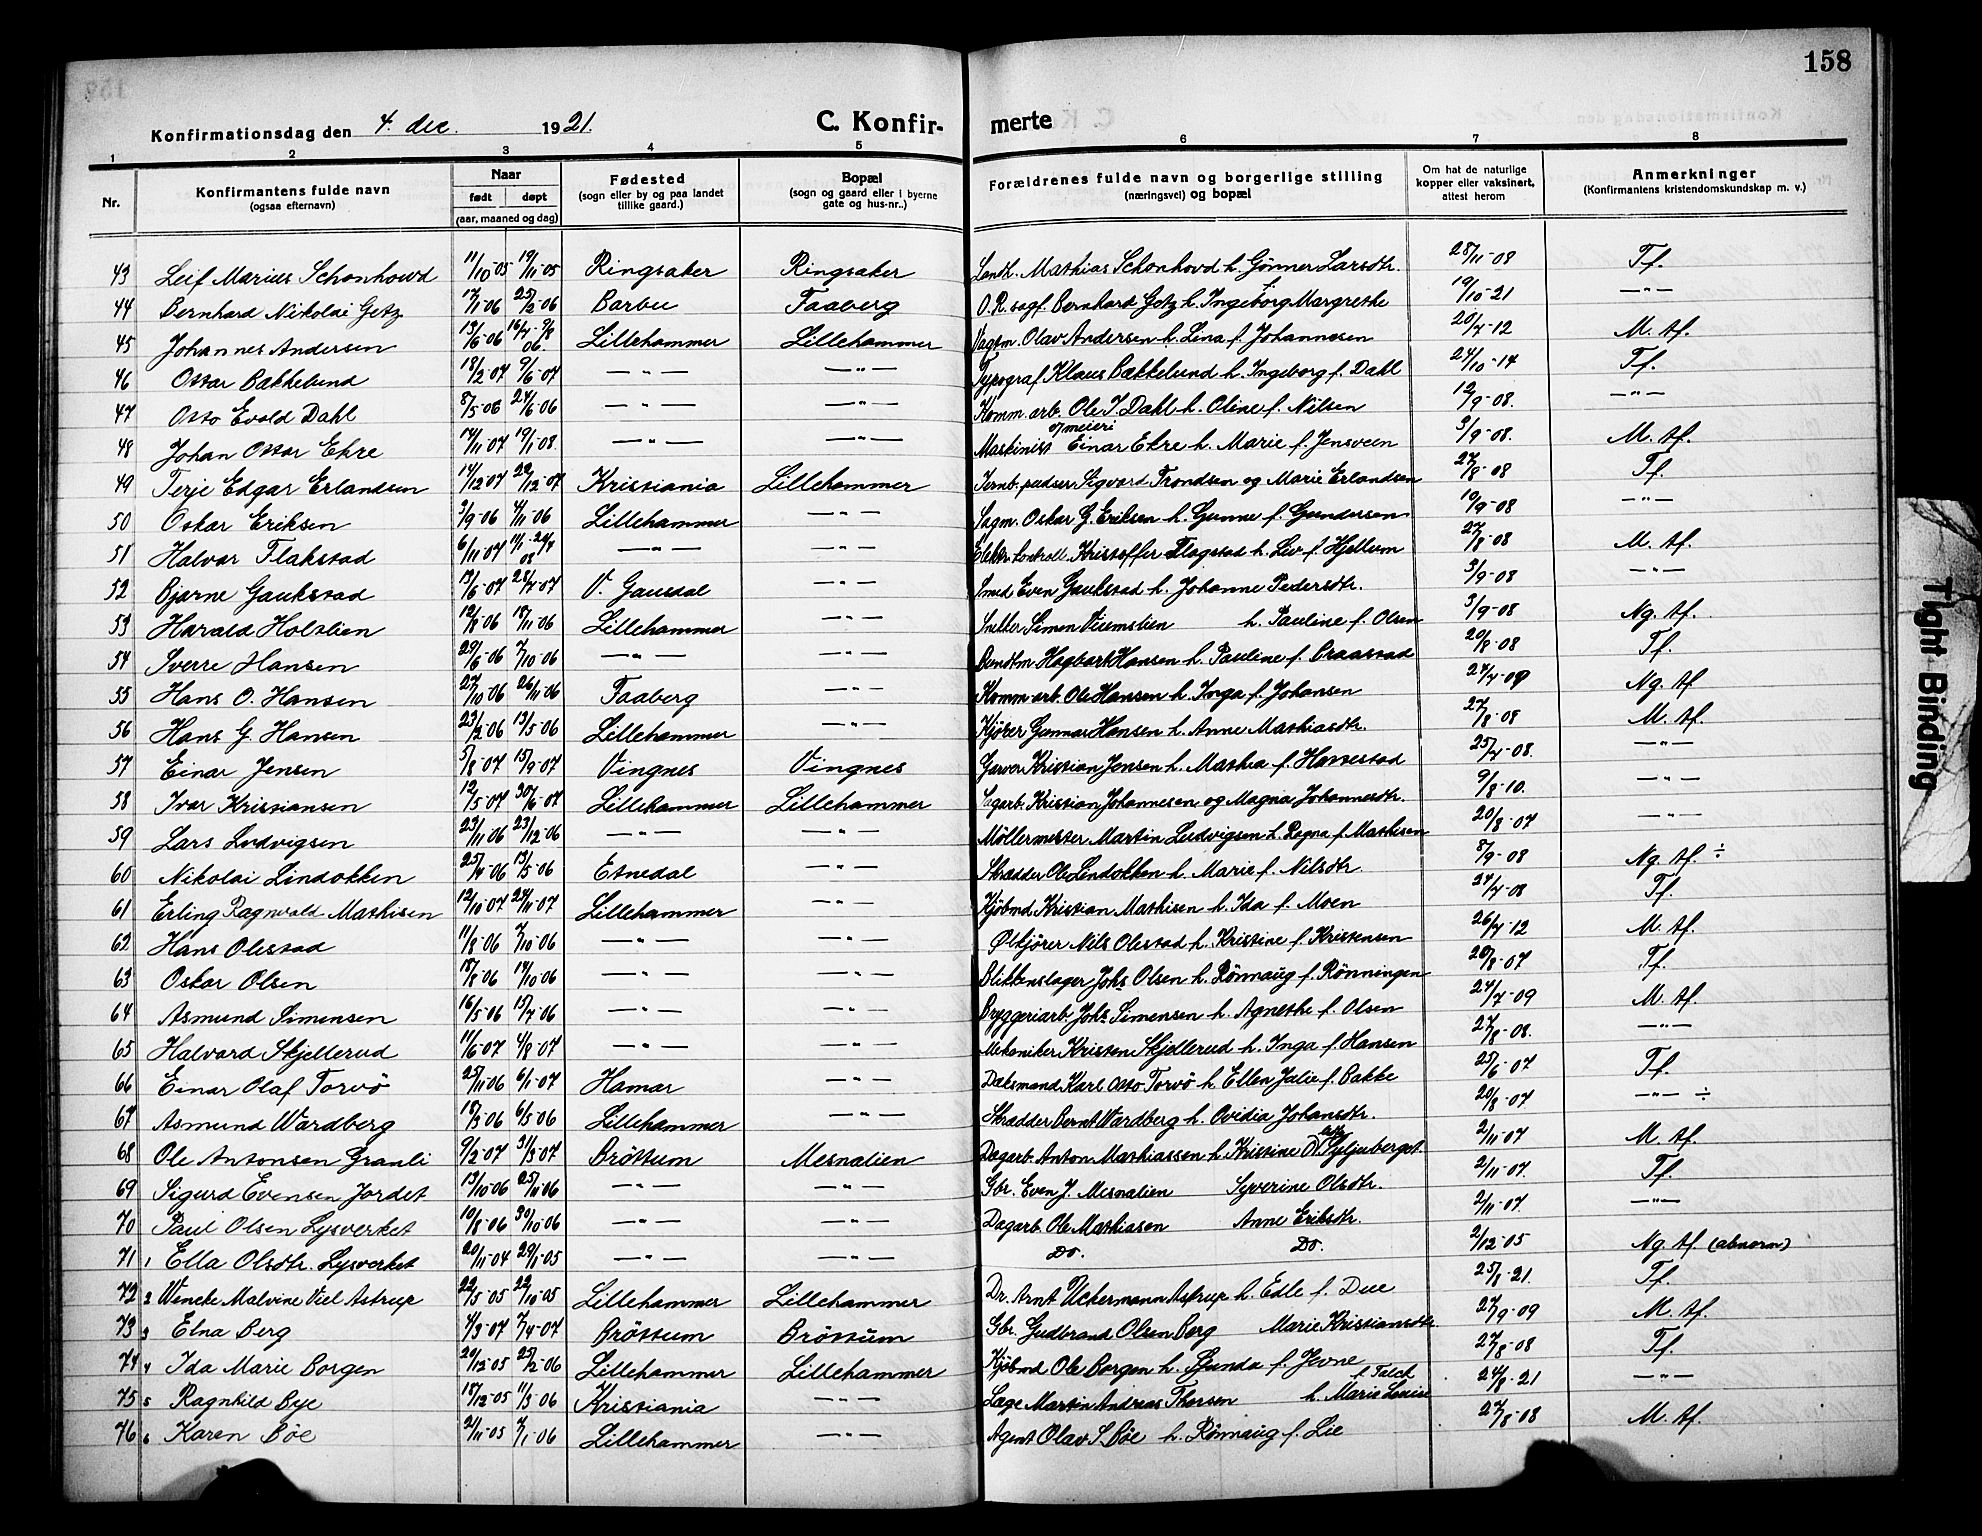 158
Konfirmationsdag den 4. dec. 1921. C. Konfir- merte
1 2 3 4 5 6 7 8
Nr. Konfirmantens fulde navn (ogsaa efternavn) Naar født døpt (aar, maaned og dag) Fødested (sogn eller by og paa landet tillike gaard.) Bopæl (sogn og gaard eller i byerne gate og hus-nr..) Forældrenes fulde navn og borgerlige stilling (næringsvei) og bopæl Om hat de naturlige kopper eller vaksinert, attest herom Anmerkninger (Konfirmantens kristendomskundskap m. v.)
43 Leif Marius Schonhowd 11/10-05 19/11-05 Ringsaker Ringsaker Landh. Mathias Schonhovd h. Gönner Larsdtr. 28/11-08 Tf.
44 Bernhard Nikolai Getz 17/1-06 25/2-06 Barbu Faaberg O.R. sagf. Bernhard Getz h. Ingeborg Margrethe 19/10-21 —"—
45 Johannes Andersen 13/6-06 Lillehammer Lillehammer Vagtm. Olav Andersen h. Lina f. Johannesen 20/7-12 M. tf.
46 Ottar Bækkelund 18/2-07 9/6-07 —"— —"— Typograf Klaus Bækkelund h. Ingeborg f. Dahl 24/10-14 Tf.
47 Otto Evald Dahl 8/5-06 24/6-06 —"— —"— Komm. arb. Ole J. Dahl h. Oline f. Nilsen 12/9-08. —"—
48 Johan Ottar Ekre 14/11-07 19/1-08. —"— —"— Maskinist v/meieri Einar Ekre h. Marie f. Jensveen 3/9-08. M. tf.
49 Terje Edgar Erlandsen 14/12-07 29/12-07 Kristiania Lillehammer Jernb. pudser Sigvard Trondsen og Marie Erlandsen 27/8-08 Tf.
50 Oskar Eriksen 3/9-06 4/11-06 Lillehammer —"— Sagm. Oskar G. Eriksen h. Gunne f. Gundersen 10/9-08 —"—
51 Halvar Flakstad 6/11-07 —"— —"— Elektr. kontroll. Kristoffer Flagstad h. Liv f. Hjellum 27/8-08 M. tf.
52 Bjarne Gaukstad 13/6-07 28/7-07 V. Gausdal —"— Smed Even Gaukstad h. Johanne Pedersdtr. 3/9-08 —"—
53 Harald Holstien 12/8-06 18/11-06 Lillehammer —"— Snekker Simen h. Pauline f. Olsen 3/9-08 Ng. tf.
54 Sverre Hansen 29/6-06 7/10-06 —"— —"— Hagbart Hansen h. Pauline f. Braastad 20/8-08 Tf.
55 Hans O. Hansen 27/10-06 26/11-06 Faaberg —"— Komm. arb. Ole Hansen h. Inga f. Johansen 27/7-09 Ng. tf
56 Hans G. Hansen 23/2-06 13/5-06 Lillehammer —"— Kjörer Gunnar Hansen h. Anne Mathiasdtr. 27/8-08 M. tf.
57 Einar Jensen 5/8-07 15/9-07 Vingnes Vingnes Garver Kristian Jensen h. Mathea f. Hovestad 25/7-08. —"—
58 Ivar Kristiansen 12/5-07 30/6-07 Lillehammer Lillehammer Sagarb. Kristian Johannesen og Magna Johannesdtr. 9/8-10. —"—
59 Lars Ludvigsen 23/11-06 23/12-06 —"— —"— Möllermester Martin Ludvigsen h. Ragna f. Mathisen 20/8-07 —"—
60 Nikolai Lindokken 25/4-06 13/5-06 Etnedal —"— Skrædder Ole Lindokken h. Marie f. Nilsdtr. 8/9-08 Ng. tf. ÷
61 Erling Ragnvald Mathisen 12/10-07 24/11-07 Lillehammer —"— Kjöbmd. Kristian Mathisen h. Ida f. Moen 24/7-08 Tf.
62 Hans Olestad 11/8-06 7/10-06 —"— —"— Ölkjörer Nils Olestad h. Kristine f. Kristensen 26/7-12 M. tf.
63 Oskar Olsen 18/8-06 14/10-06 —"— —"— Blikkenslager Johs Olsen h. Rönnaug f. Rönningen 20/8-07 Tf.
64 Asmund Simensen 16/5-06 15/7-06 —"— —"— Bryggeriarb. Johs Simensen h. Agnethe f. Olsen 24/7-09 M. tf.
65 Halvard Skjellerud 11/6-07 4/8-07 —"— —"— Mekaniker Kristen Skjellerud h. Inga f. Hansen 27/8-08. —"—
66 Einar Olaf Torvö 25/11-06 6/1-07 Hamar —"— Dæksmand Karl Otto Torvö h. Ellen Jalie f. Bakke 25/6-07 Tf.
67 Asmund Wardberg 18/3-06 6/5-06 Lillehammer —"— Skrædder Bernt Wardberg h. Ovidia Johansdtr. 20/8-07 —"— ÷
68 Ole Antonsen Granli 9/2-07 31/3-07 Bröttum Mesnalien Dagarb. Anton Mathiassen h. Kristine 2/11-07 M. tf.
69 Sigurd Evensen Jordet 13/10-06 25/11-06 —"— —"— Gbr. Even J. Mesnalien Syverine Olsdtr. 2/11-07. Tf.
70 Paul Olsen Lysverket 19/8-06 30/10-06 —"— —"— Dagarb. Ole Mathiasen Anne Eriksdtr. 2/11-07. —"—
71 1 Ella Olsdtr. Lysverket 20/11-04 29/1-05 —"— —"— Do. Do. 2/12-05 Ng. tf. (abnorm)
72 2 Wencke Malvine Viel Astrup 22/5-05 22/10-05 Lillehammer Lillehammer Dr. Arnt Uckermann Astrup h. Edle f. Due 25/8-21. Tf.
73 3 Elna Berg 4/3-07 7/4-07 Bröttum Bröttum Gbr. Gudbrand Olsen Berg Marie Kristiansdtr. 27/9-09 M. tf.
74 4 Ida Marie Borgen 20/12-05 25/2-06 Lillehammer Lillehammer Kjöbmd. Ole Borgen h. Gunda f. Jevne 27/8-08 Tf.
75 5 Ragnhild Bye 18/12-05 11/3-06 Kristiania —"— Læge Martin Andreas Thorsen h. Marie Louise f. Falck 24/8-21 —"—
76 6 Karen Böe 2/11-05 7/1-06 Lillehammer —"— Agent Olav S. Böe h. Rönnaug f. Lie 27/8-08 M. tf.
Tight Binding